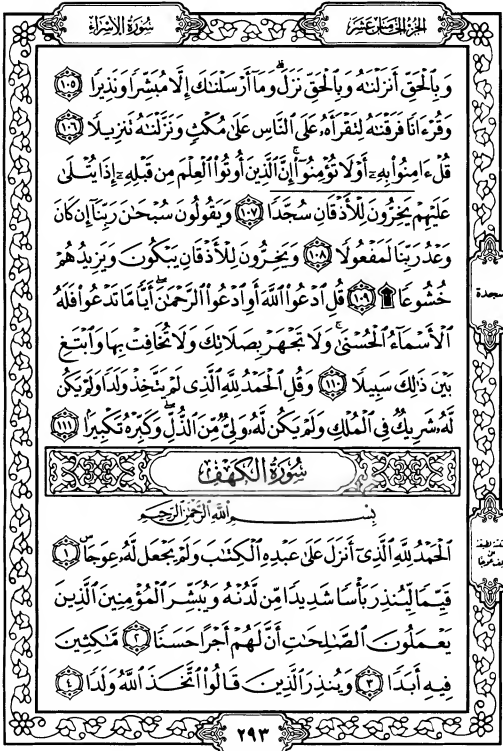 سُورَةُ الإِسْرَاءِ
الجُزْءُ الخَامِسَ عَشَرَ
وَبِالْحَقِّ أَنزَلْنَٰهُ وَبِالْحَقِّ نَزَلَ ۗ وَمَآ أَرْسَلْنَٰكَ إِلَّا مُبَشِّرًا وَنَذِيرًا ١٠٥
وَقُرْءَانًا فَرَقْنَٰهُ لِتَقْرَأَهُۥ عَلَى النَّاسِ عَلَىٰ مُكْثٍ وَنَزَّلْنَٰهُ تَنزِيلًا ١٠٦
قُلْ ءَامِنُوا۟ بِهِۦٓ أَوْ لَا تُؤْمِنُوٓا۟ ۚ إِنَّ الَّذِينَ أُوتُوا۟ الْعِلْمَ مِن قَبْلِهِۦٓ إِذَا يُتْلَىٰ
عَلَيْهِمْ يَخِرُّونَ لِلْأَذْقَانِ سُجَّدًا ١٠٧ وَيَقُولُونَ سُبْحَٰنَ رَبِّنَآ إِن كَانَ
وَعْدُ رَبِّنَا لَمَفْعُولًا ١٠٨ وَيَخِرُّونَ لِلْأَذْقَانِ يَبْكُونَ وَيَزِيدُهُمْ
خُشُوعًا ۩ ١٠٩ قُلِ ادْعُوا۟ اللَّهَ أَوِ ادْعُوا۟ الرَّحْمَٰنَ ۖ أَيًّا مَّا تَدْعُوا۟ فَلَهُ
الْأَسْمَآءُ الْحُسْنَىٰ ۚ وَلَا تَجْهَرْ بِصَلَاتِكَ وَلَا تُخَافِتْ بِهَا وَابْتَغِ
بَيْنَ ذَٰلِكَ سَبِيلًا ١١٠ وَقُلِ الْحَمْدُ لِلَّهِ الَّذِى لَمْ يَتَّخِذْ وَلَدًا وَلَمْ يَكُن
لَّهُۥ شَرِيكٌ فِى الْمُلْكِ وَلَمْ يَكُن لَّهُۥ وَلِىٌّ مِّنَ الذُّلِّ ۖ وَكَبِّرْهُ تَكْبِيرًۢا ١١١
سُورَةُ الكَهْفِ
بِسْمِ اللَّهِ الرَّحْمَٰنِ الرَّحِيمِ
الْحَمْدُ لِلَّهِ الَّذِىٓ أَنزَلَ عَلَىٰ عَبْدِهِ الْكِتَٰبَ وَلَمْ يَجْعَل لَّهُۥ عِوَجَا ۜ ١
قَيِّمًا لِّيُنذِرَ بَأْسًا شَدِيدًا مِّن لَّدُنْهُ وَيُبَشِّرَ الْمُؤْمِنِينَ الَّذِينَ
يَعْمَلُونَ الصَّٰلِحَٰتِ أَنَّ لَهُمْ أَجْرًا حَسَنًا ٢ مَّٰكِثِينَ
فِيهِ أَبَدًا ٣ وَيُنذِرَ الَّذِينَ قَالُوا۟ اتَّخَذَ اللَّهُ وَلَدًا ٤
سجدة
٢٩٣